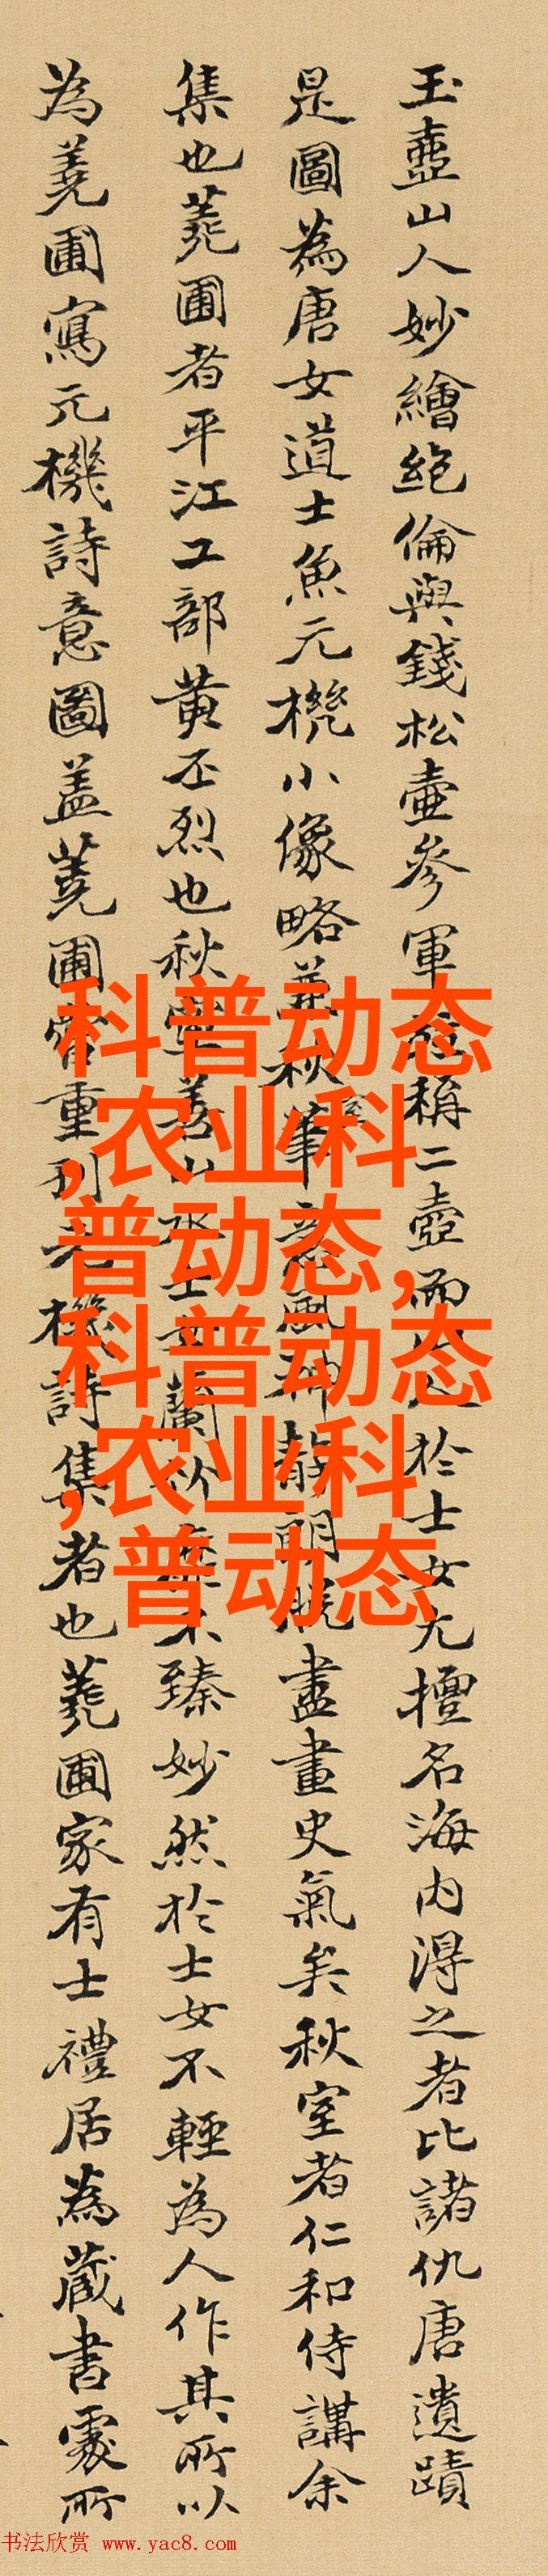 玉壺山人妙繪絕倫與錢松壷參軍並稱二壺而人於士女尤擅名海内得之者比諸仇唐遺蹟
是圖為唐女道士魚元機小像略兼秋室筆意風神静朗脱盡畫史氣矣秋室者仁和侍講余
集也蕘圃者平江工部黄丕烈也秋室善山水士女蘭竹無不臻妙然於士女不輕為人作其所以
為蕘圃寫元機詩意圖盖蕘圃嘗重刊元機詩集者也蕘圃家有士禮居為藏書處所
科普动态
,农业科
普动态,
科普动态
,农业科
普动态
书法欣赏 www.yac8.com